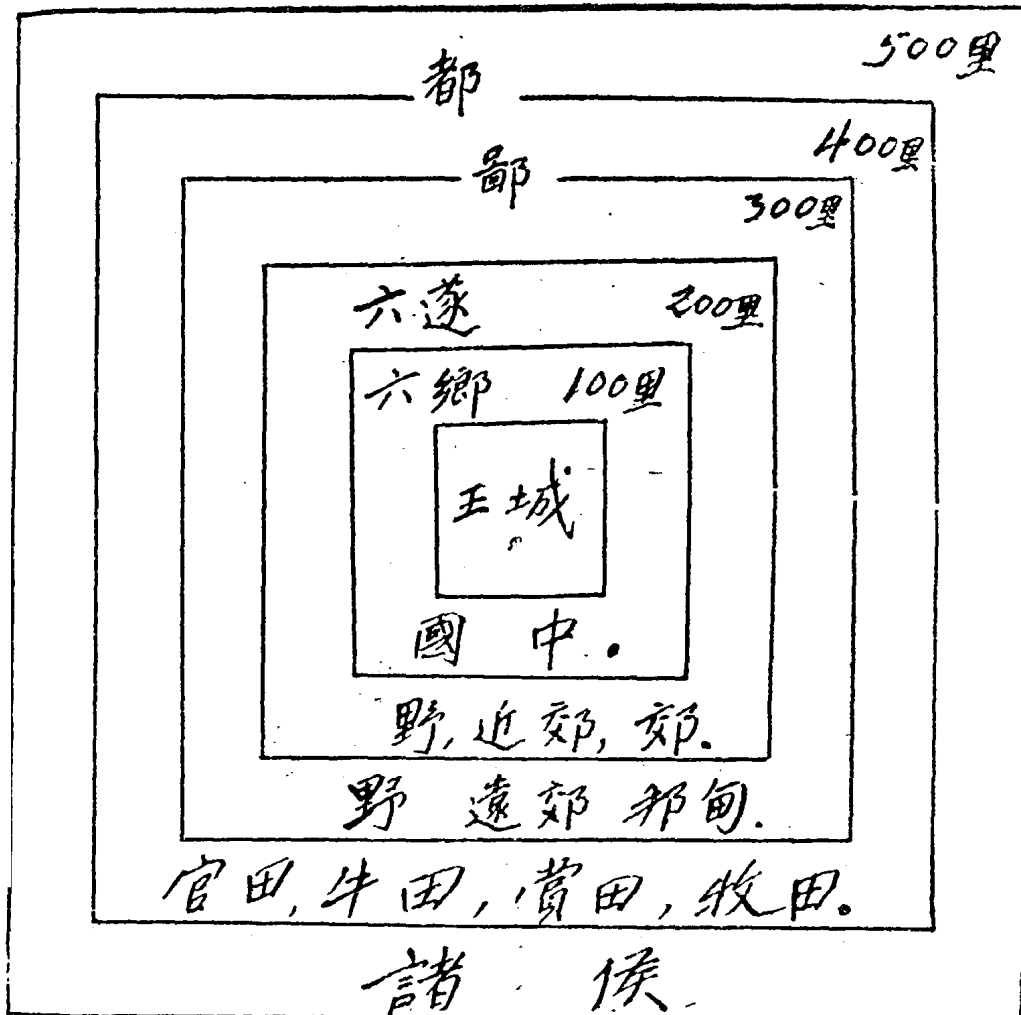 500里
都
400里
鄙
300里
六遂 200里
六鄉 100里
王城
國中.
野, 近郊, 郊.
野 遠郊 邦甸.
官田, 牛田, 賞田, 牧田。
諸侯